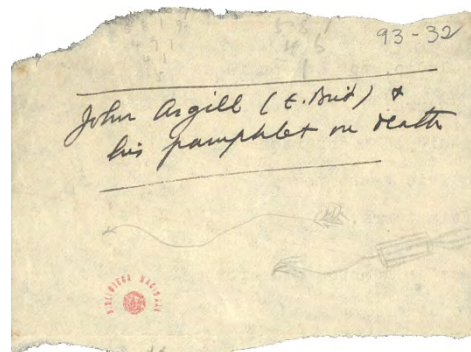 93-32
John Asgill (E. Brit) &
his pamphlet on death
BIBLIOTECA NACIONAL